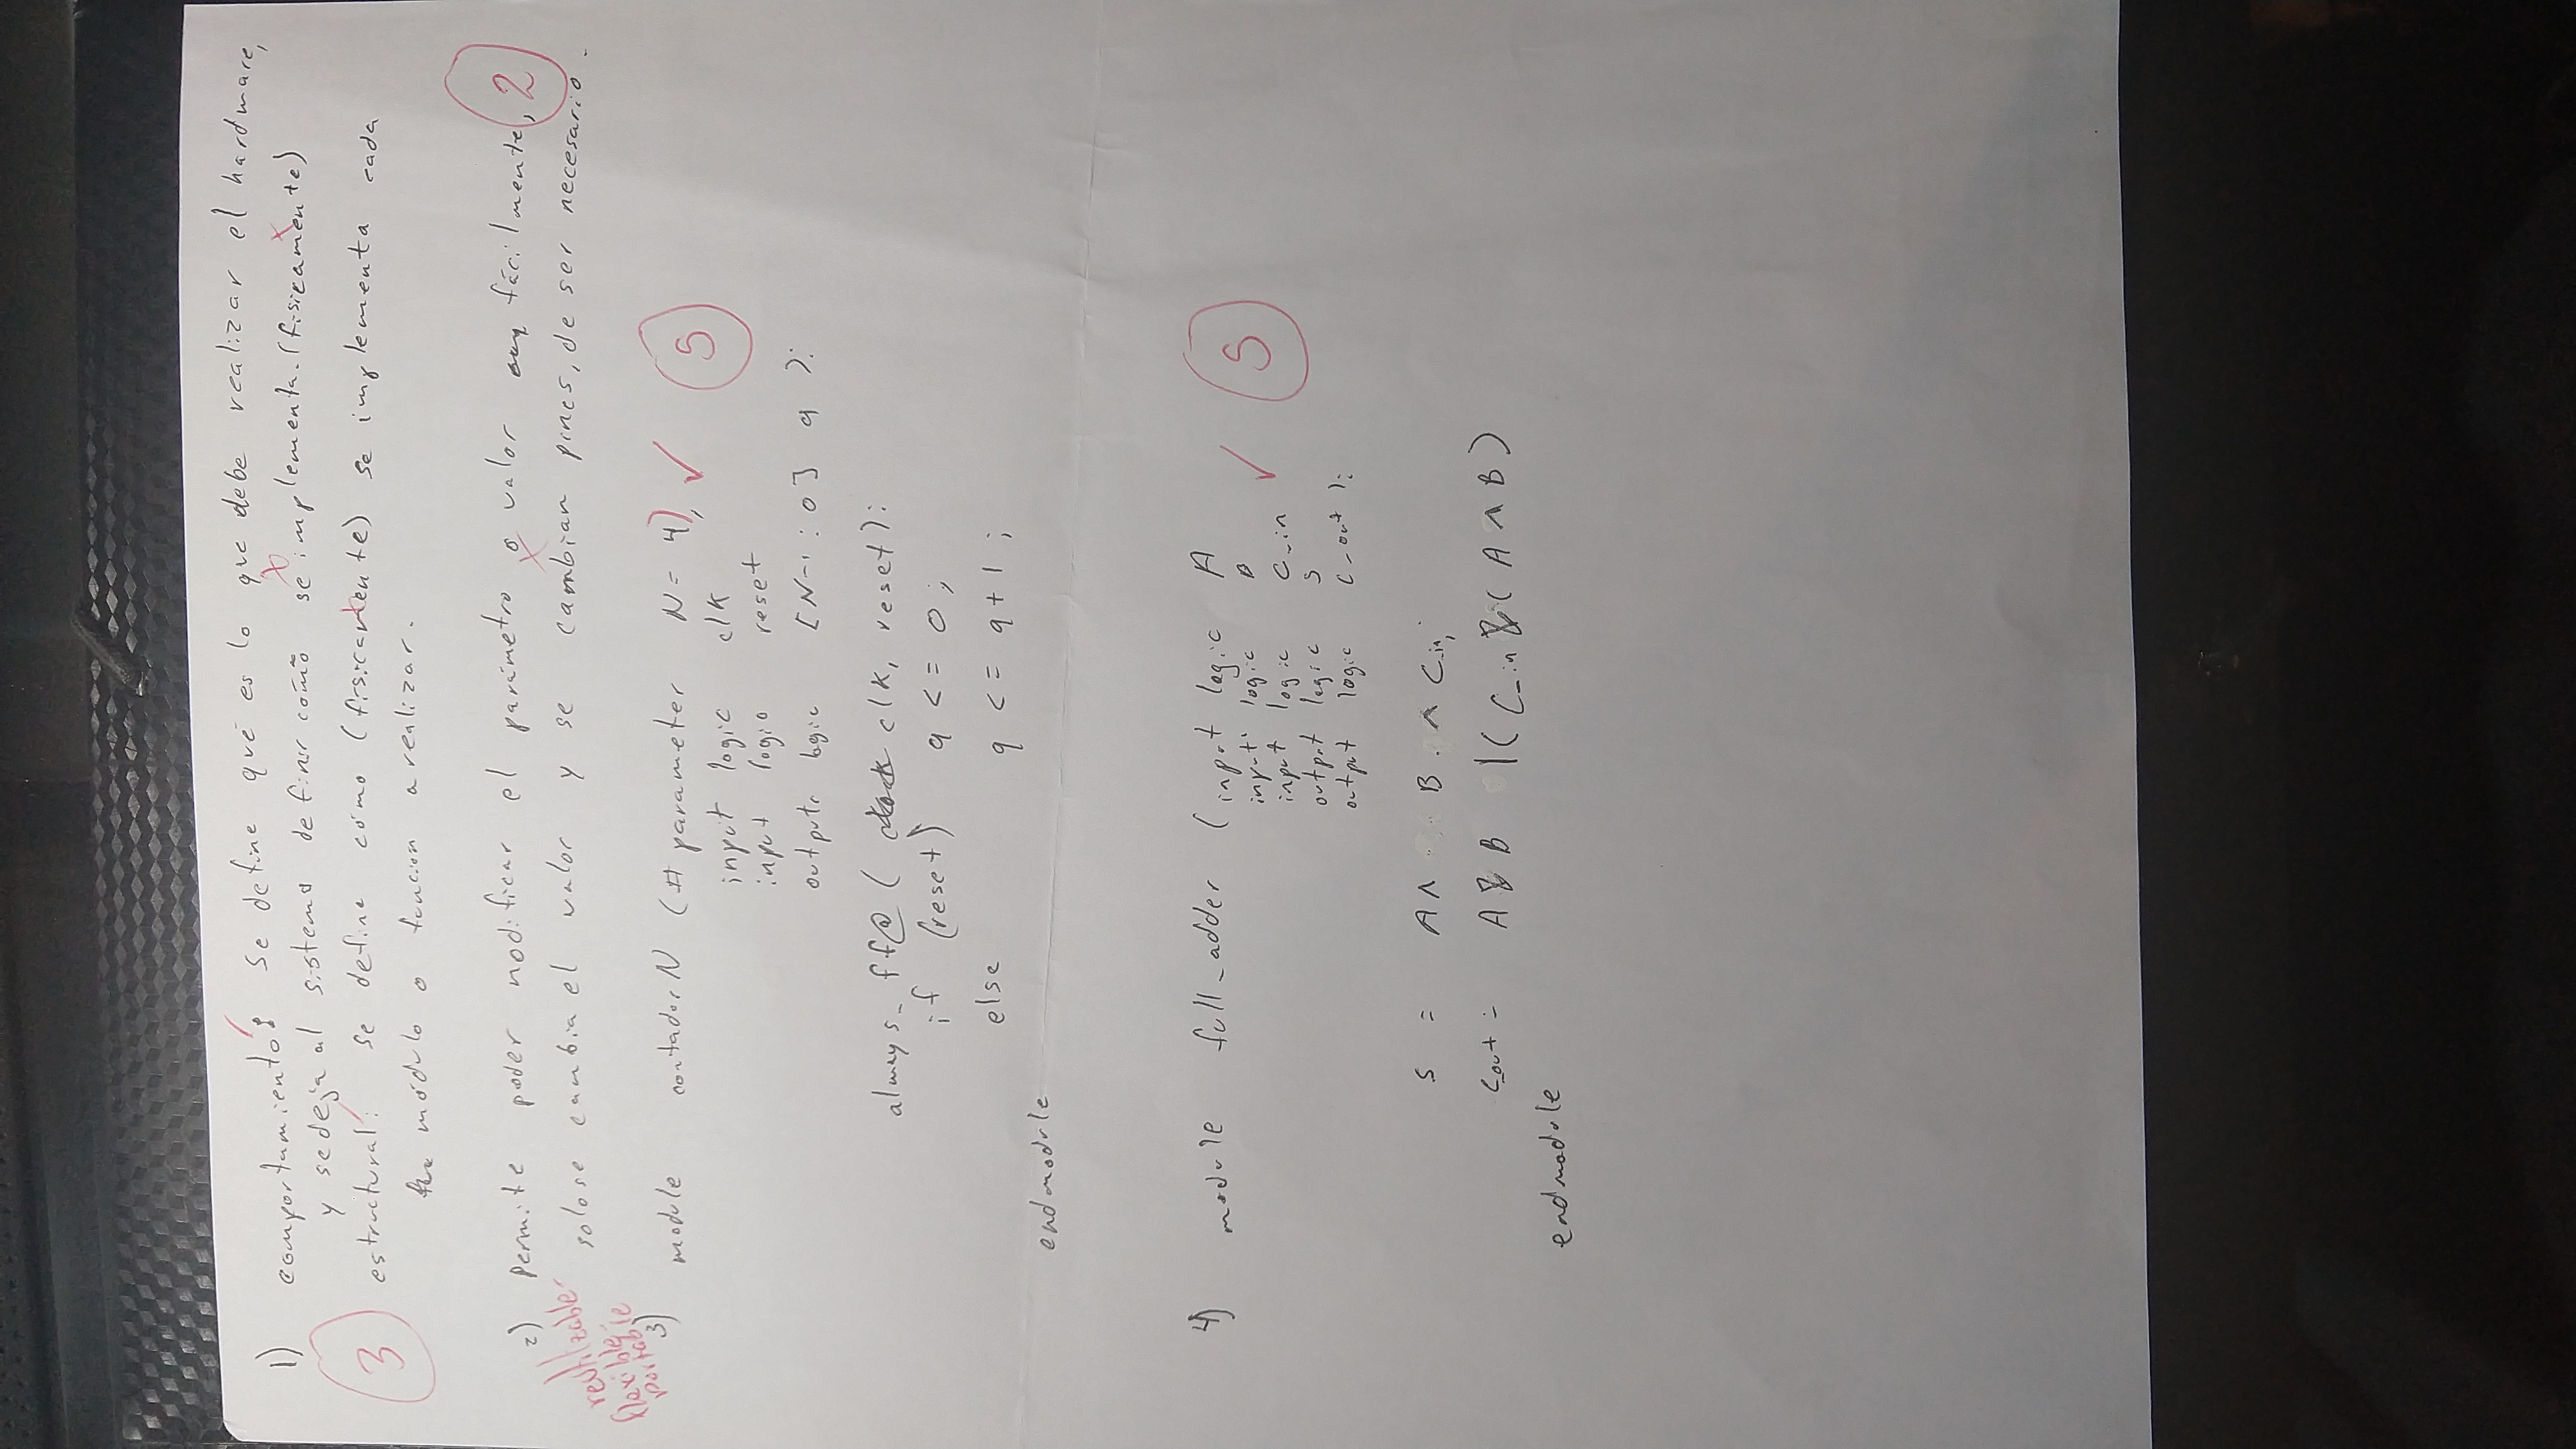 1) comportamiento: se define qué es lo que debe realizar el hardware,
y se deja al sistema definir cómo se implementa. (físicamente)
3
estructural: se define cómo (físicamente) se implementa cada
módulo o función a realizar.
2) Permite poder modificar el parámetro o valor fácilmente, 2
solo se cambia el valor y se cambian pines, de ser necesario.
reutilzable-
flexible-
portable
3) module contador N (# parameter N = 4), ✓ 5
input logic clk
input logic reset
output logic [N-1:0] q );
always_ff@ ( clk, reset):
if (reset) q <= 0;
else q <= q+1;
endmodule
4) module full_adder (input logic A
input logic B ✓ 5
input logic C_in
output logic S
output logic C_out );
S = A ^ B ^ C_in;
C_out = A & B | ( C_in & ( A ^ B )
endmodule